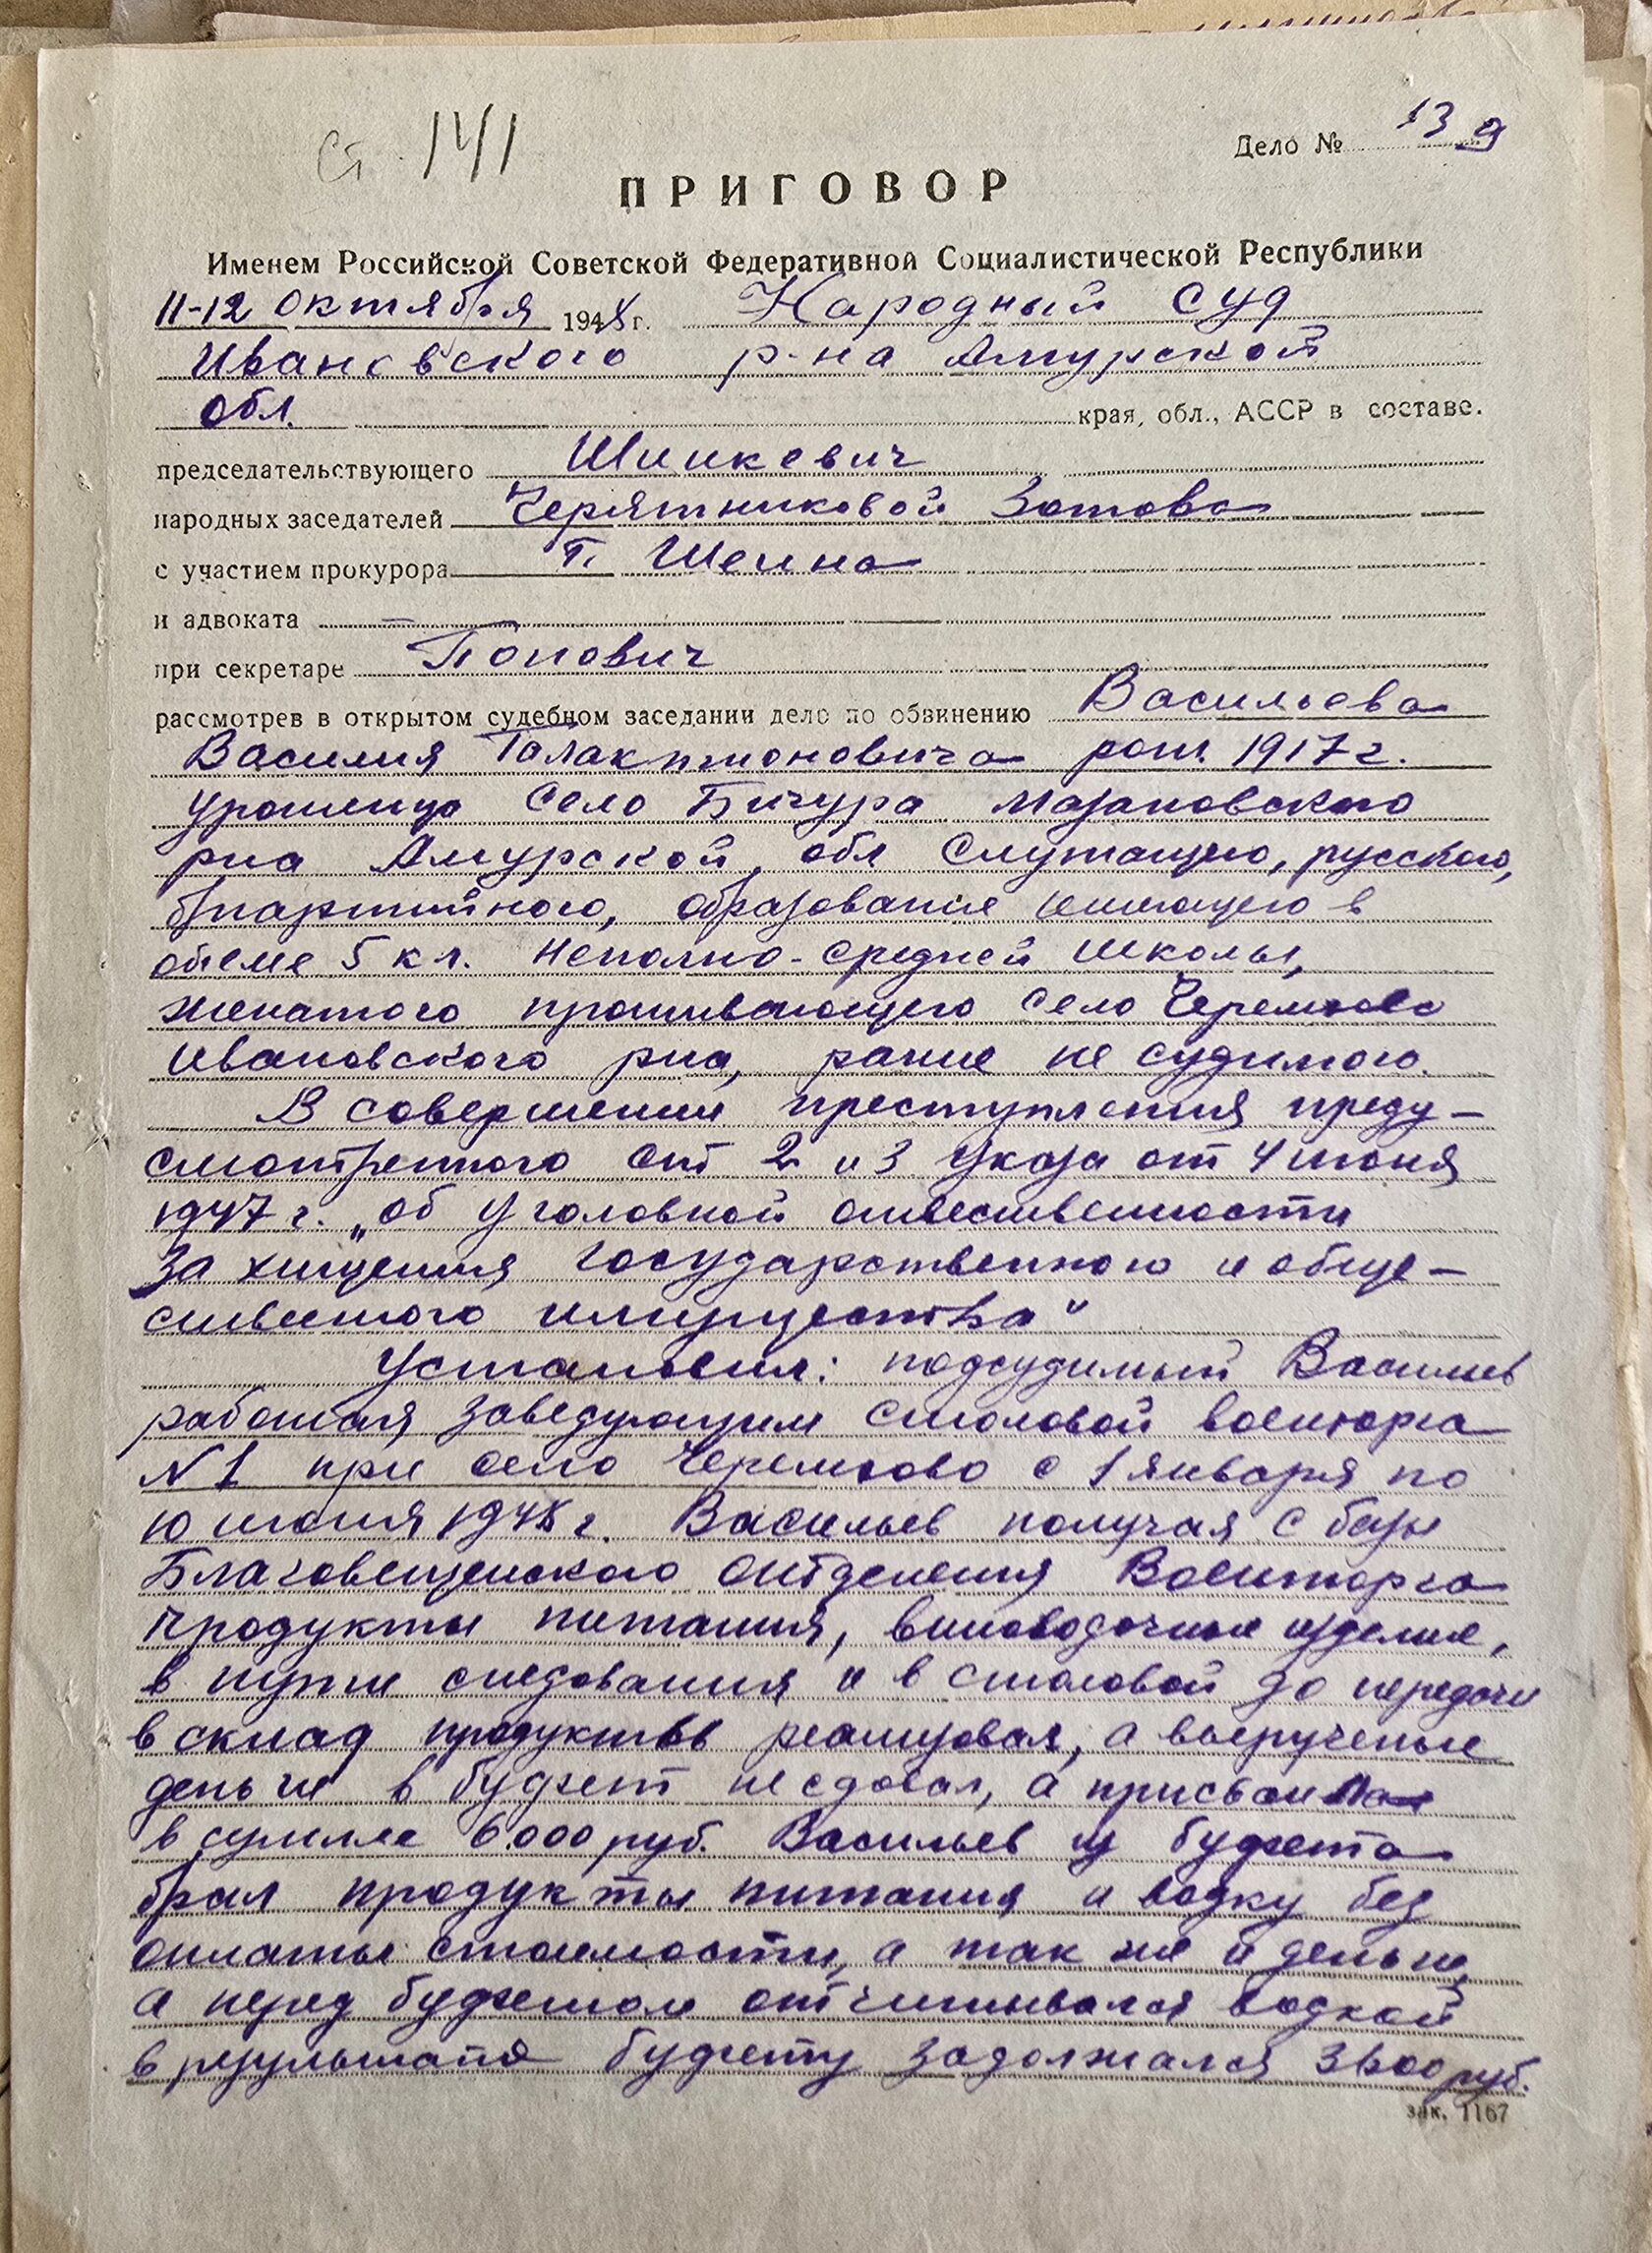 Ст. 141
Дело № 139
ПРИГОВОР
Именем Российской Советской Федеративной Социалистической Республики
11-12 Октября 1948 г. Народный суд
Ивановского р-на Амурской
обл. края, обл., АССР в составе.
председательствующего Шинкевич
народных заседателей Зотова
с участием прокурора П. Шеина
и адвоката —
при секретаре Попович
рассмотрев в открытом судебном заседании дело по обвинению Васильева
Василия Галактионовича рож. 1917 г.
Уроженца Село Бичура Мазановского
рна Амурской обл Служащего, русского,
б/партийного, образование имеющего в
обеме 5 кл. Неполно-средней школы,
женатого проживающего Село Черемхово
Ивановского рна, ранее не судимого.
В совершении преступления преду-
смотренного ст 2 и 3 Указа от 4 июня
1947 г. „об уголовной ответственности
за хищения государственного и обще-
ственного имущества"
Установил: подсудимый Васильев
работая заведующим столовой военторга
N 1 при село Черемхово с 1 января по
10 июня 1948 г. Васильев получая с базы
Благовещенского отделения Военторга
продукты питания, виноводочные изделия,
в пути следования и в столовой до передачи
в склад продуктов реализовал, а вырученые
деньги в буфет не сдавал, а присвоил
в сумме 6.000 руб. Васильев из буфета
брал продукты питания и водку без
оплаты стоимости, а так же и деньги,
а перед буфетом отчитывался водкой
в результате буфету задолжался 3600 руб.
зак. 1167